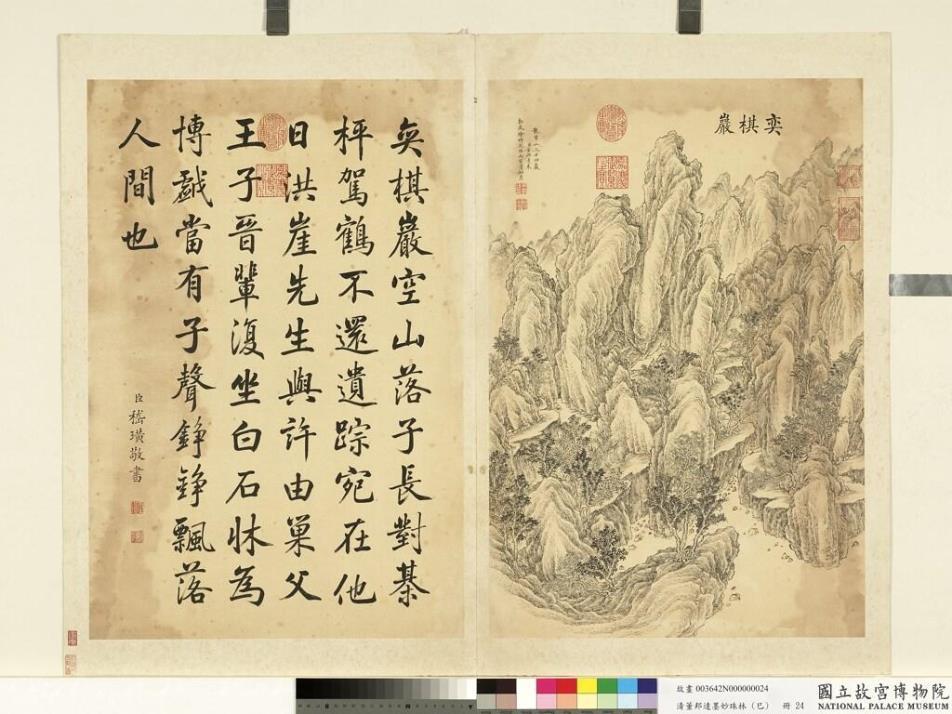 奕棋巖
奕棋巖空山落子長對棊
枰駕鶴不還遺踪宛在他
日洪崖先生與許由巢父
王子晉輩復坐白石牀為
博戲當有子聲錚錚飄落
人間也
臣嵇璜敬書
故畫 003642N000000024
清董邦達墨妙珠林（巳） 冊 24
國立故宮博物院
NATIONAL PALACE MUSEUM